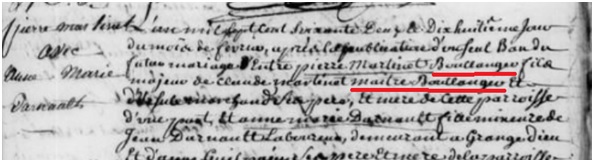 pierre martinet
avec
anne Marie
Darnault
L'an mil sept cent soixante Deux le Dixhuitième Jour
du mois de fevrier, après la publication d'un seul Ban du
futur mariage Entre pierre Martinet Boullanger fils
majeur de claude martinet maitre Boullanger Et
marchand ses pere, et mere de cette parroisse
d'une part, et anne marie Darnault fille mineure de
Jean Darnault Laboureur, demeurant a Grangedieu
Et mere de la paroisse